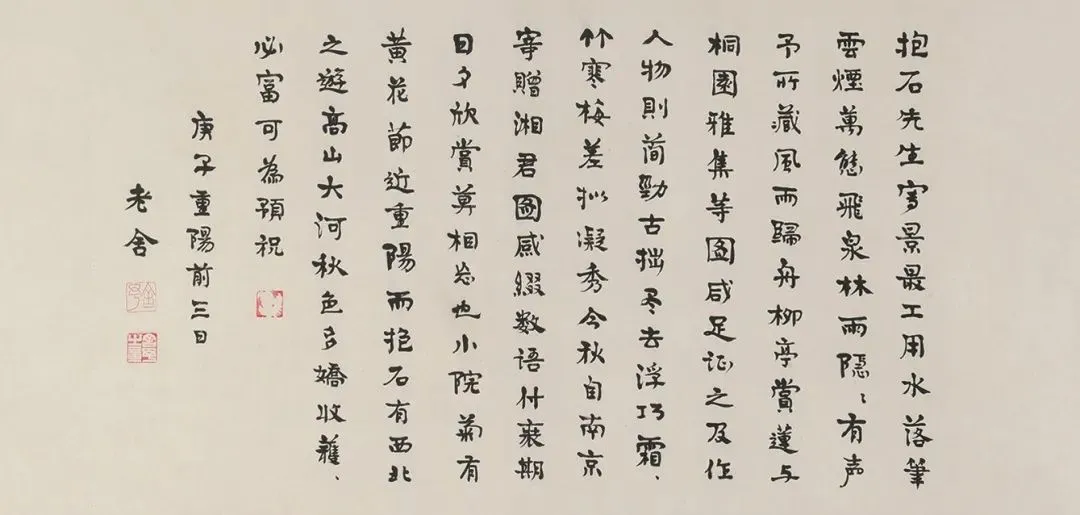 抱石先生寫景最工用水落筆
雲煙萬態飛泉林雨隱、有声
予所藏風雨歸舟柳亭賞蓮与
桐園雅集等圖咸足证之及作
人物則简勁古拙尽去浮巧霜、
竹寒梅差拟凝秀今秋自南京
寄贈湘君圖感綴数语什襲期
日夕欣賞莫相忘也小院菊有
黃花節近重陽而抱石有西北
之遊高山大河秋色多嬌收穫、
必富可為預祝
庚子重陽前三日
老舍